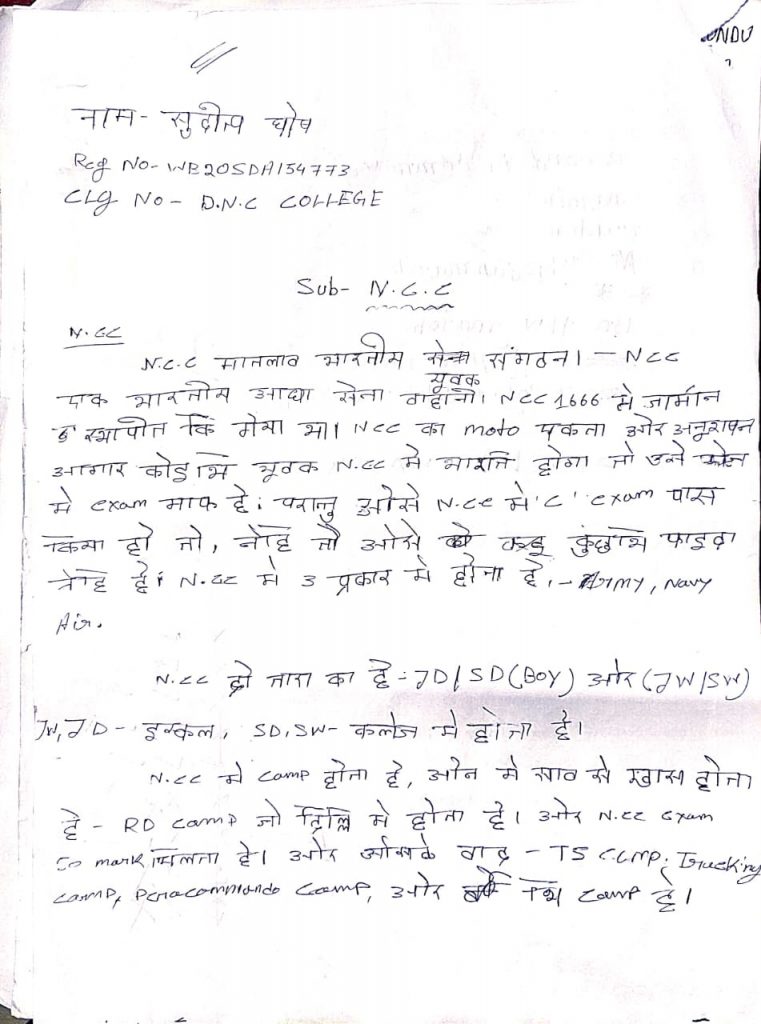 UNDU
नाम- सुदीप घोष
Reg No- WB20SDA154773
CLG No- D.N.C COLLEGE
Sub- N.C.C
N.CC
N.C.C मातलाव भारतीस संगठन। - NCC
एक भारतीस आधा सेना युवक वाहानी। NCC 1666 मे जार्मान
स्थापीत कि गेया था। NCC का moto एकता और अनुशापन
आगार कोइभि युवक N.CC मे भारति होगा तो उसे
मे exam माफ है। परान्तु ओसे N.CC मे 'C' exam पास
किया हो तो, नेहि तो ओसे कुछभि फाइदा
नेहि है। N.CC मे 3 प्रकार मे होता है, - Army, Navy
Air.
N.CC दो तारा का है - JD/SD(BOY) और (JW/SW)
JW, JD - इस्कल, SD, SW- कलेज मे होता है।
N.CC मे camp होता है, ओन मे साव से खास होता
है - RD camp जो दिल्लि मे होता है। और N.CC exam
50 mark मिलता है। और ओसके वाद - TS camp, Trucking
camp, Paracommando camp, और भि camp है।